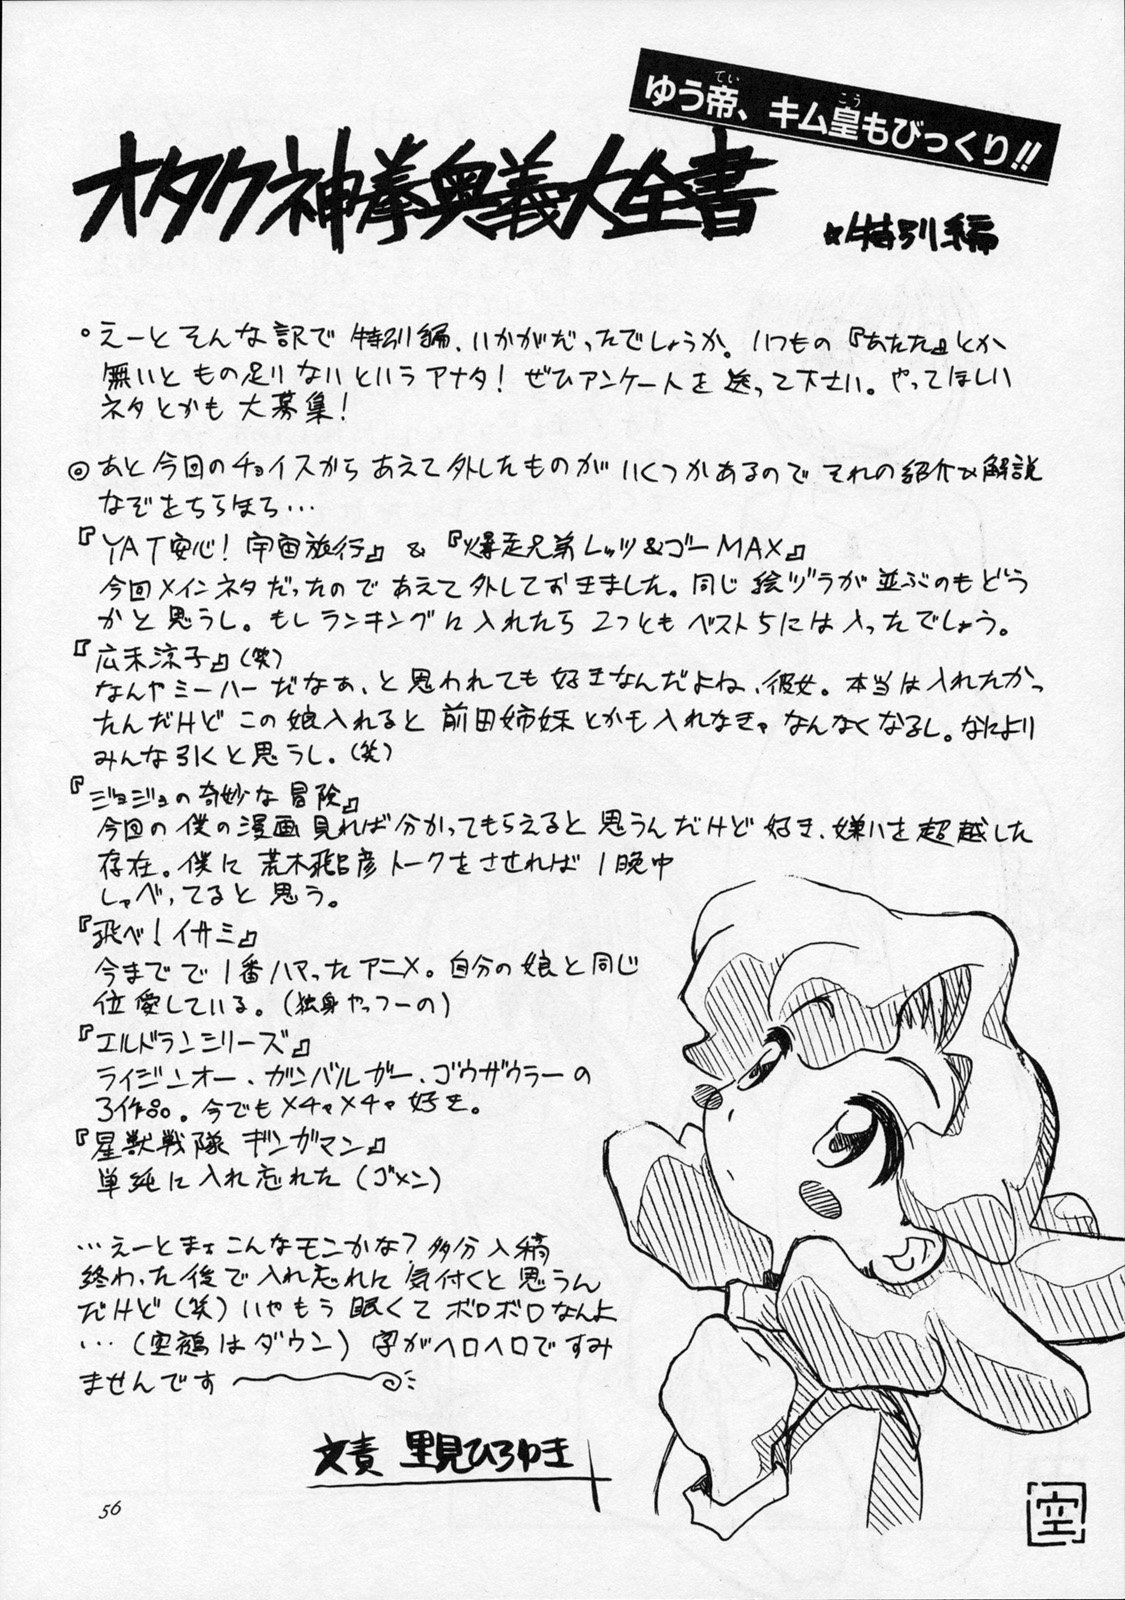 ゆう帝、キム皇もびっくり!!
てい
こう
オタク神拳奥義大全書
☆特別編
。えーとそんな訳で特別編、いかがだったでしょうか。いつもの『あたた』とか
無いともの足りないというアナタ!ぜひアンケートを送って下さい。やってほしい
ネタとかも大募集!
◎あと今回のチョイスからあえて外したものがいくつかあるのでそれの紹介&解説
なぞをちらほら…
『YAT安心!宇宙旅行』&『爆走兄弟レッツ&ゴーMAX』
今回メインネタだったのであえて外しておきました。同じ絵ヅラが並ぶのもどう
かと思うし。もしランキングに入れたら2つともベスト5には入ったでしょう。
『広末涼子』(笑)
なんやミーハーだなぁ、と思われても好きなんだよね、彼女。本当は入れたかっ
たんだけどこの娘入れると前田姉妹とかも入れなきゃなんなくなるし。なにより
みんな引くと思うし。(笑)
『ジョジョの奇妙な冒険』
今回の僕の漫画見れば分かってもらえると思うんだけど好き、嫌いを超越した
存在。僕に荒木飛呂彦トークをさせれば1晩中
しゃべってると思う。
『飛べ!イサミ』
今までで1番ハマったアニメ。自分の娘と同じ
位愛している。(独身やっつーの)
『エルドランシリーズ』
ライジンオー、ガンバルガー、ゴウザウラーの
3作品。今でもメチャメチャ好き。
『星獣戦隊ギンガマン』
単純に入れ忘れた(ゴメン)
…えーとまァこんなモンかな?多分入稿
終わった後で入れ忘れに気付くと思うん
だけど(笑)いやもう眠くてボロボロなんよ
…(空鶴はダウン)字がヘロヘロですみ
ませんです
文責 里見ひろゆき
56
空